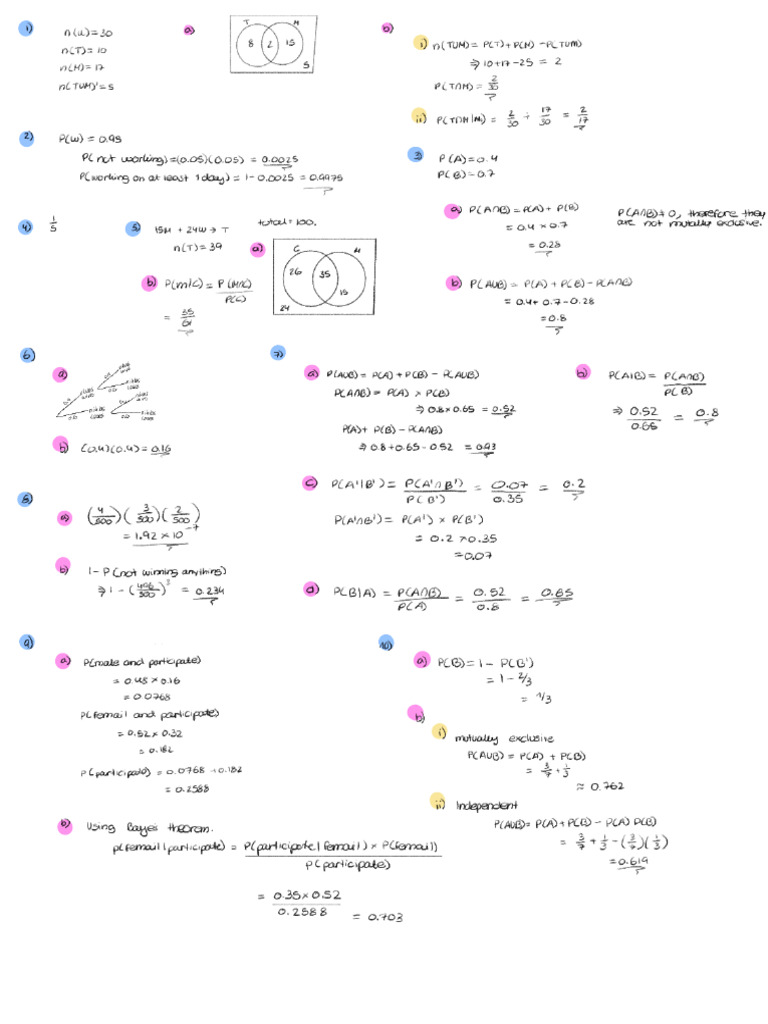 1) n(u) = 30
n(T) = 10
n(M) = 17
n(TUM)' = 5
a) T M
8 2 15
5
b)
i) n(TUM) = P(T) + P(M) - P(TUM)
⇒ 10 + 17 - 25 = 2
P(T∩M) = 2/30
ii) P(T∩M|M) = 2/30 ÷ 17/30 = 2/17
2) P(W) = 0.95
P(not working) = (0.05)(0.05) = 0.0025
P(working on at least 1 day) = 1 - 0.0025 = 0.9975
3) P(A) = 0.4
P(B) = 0.7
a) P(A∩B) = P(A) + P(B)
= 0.4 × 0.7
= 0.28
P(A∩B) ≠ 0, therefore they
are not mutually exclusive.
b) P(AUB) = P(A) + P(B) - P(A∩B)
= 0.4 + 0.7 - 0.28
= 0.8
4) 1/5
5) 15M + 24W → T
n(T) = 39
total = 100.
a) C M
26 35 15
24
b) P(M/C) = P(M∩C)/P(C)
= 35/61
6)
a)
b) (0.4)(0.4) = 0.16
7)
a) P(AUB) = P(A) + P(B) - P(AUB)
P(A∩B) = P(A) × P(B)
⇒ 0.8 × 0.65 = 0.52
P(A) + P(B) - P(A∩B)
⇒ 0.8 + 0.65 - 0.52 = 0.93
b) P(A|B) = P(A∩B)/P(B)
⇒ 0.52/0.65 = 0.8
c) P(A'|B') = P(A'∩B')/P(B') = 0.07/0.35 = 0.2
P(A'∩B') = P(A') × P(B')
= 0.2 × 0.35
= 0.07
d) P(B|A) = P(A∩B)/P(A) = 0.52/0.8 = 0.65
8)
a) (4/500)(3/500)(2/500)
= 1.92 × 10^-7
b) 1 - P(not winning anything)
⇒ 1 - (496/500)
= 0.234
9)
a) P(male and participate)
= 0.48 × 0.16
= 0.0768
P(femail and participate)
= 0.52 × 0.32
= 0.182
P(participate) = 0.0768 + 0.182
= 0.2588
b) Using Baye's theorem.
P(femail|participate) = P(participate|femail) × P(femail)/P(participate)
= 0.35 × 0.52/0.2588 = 0.703
10)
a) P(B) = 1 - P(B')
= 1 - 2/3
= 1/3
b)
i) mutually exclusive
P(AUB) = P(A) + P(B)
= 3/7 + 1/3
≈ 0.762
ii) Independent
P(AUB) = P(A) + P(B) - P(A) P(B)
= 3/7 + 1/3 - (3/7)(1/3)
= 0.619